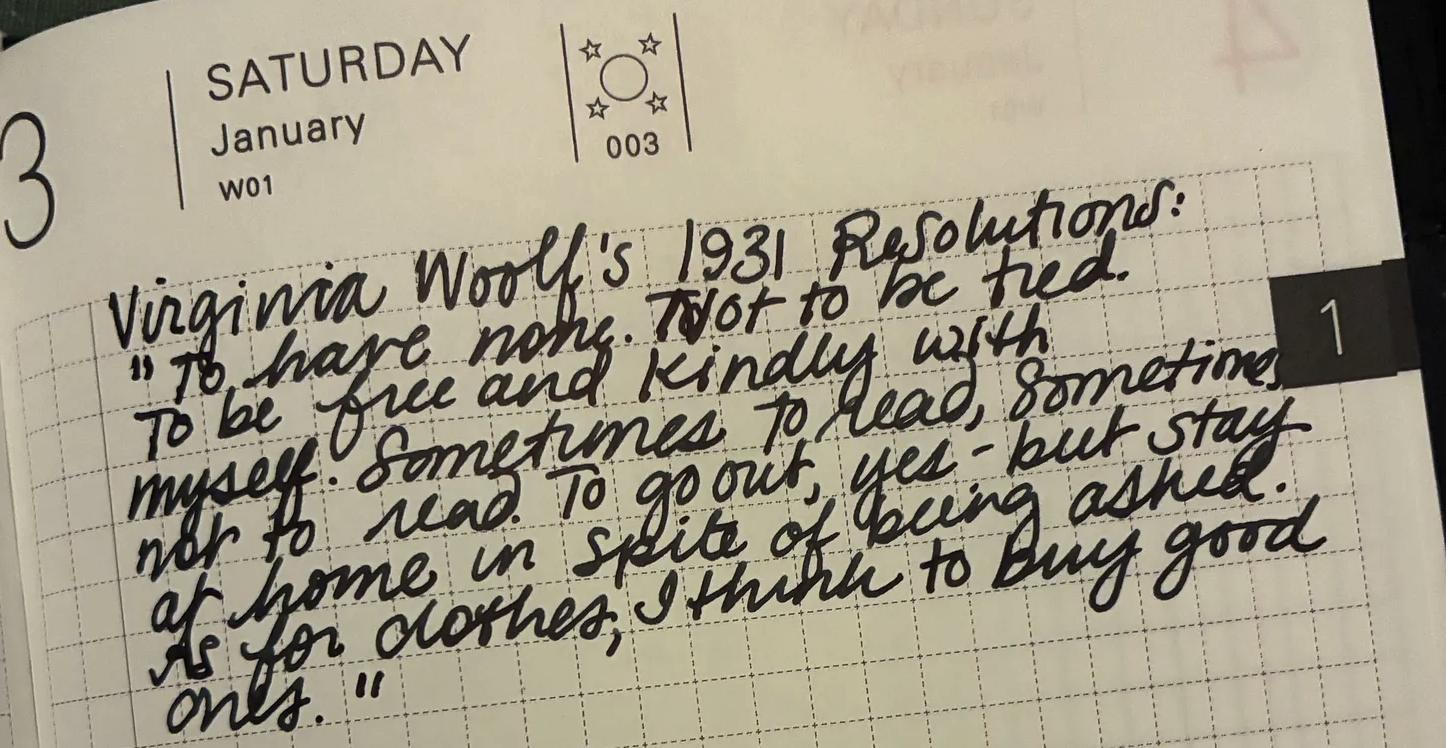 3
SATURDAY
January
W01
003
SUNDAY
January
W01
4
Virginia Woolf's 1931 Resolutions:
"To have none. Not to be tied.
To be free and kindly with
myself. Sometimes to read, sometimes
not to read. To go out, yes - but stay
at home in spite of being asked.
As for clothes, I think to buy good
ones."
1